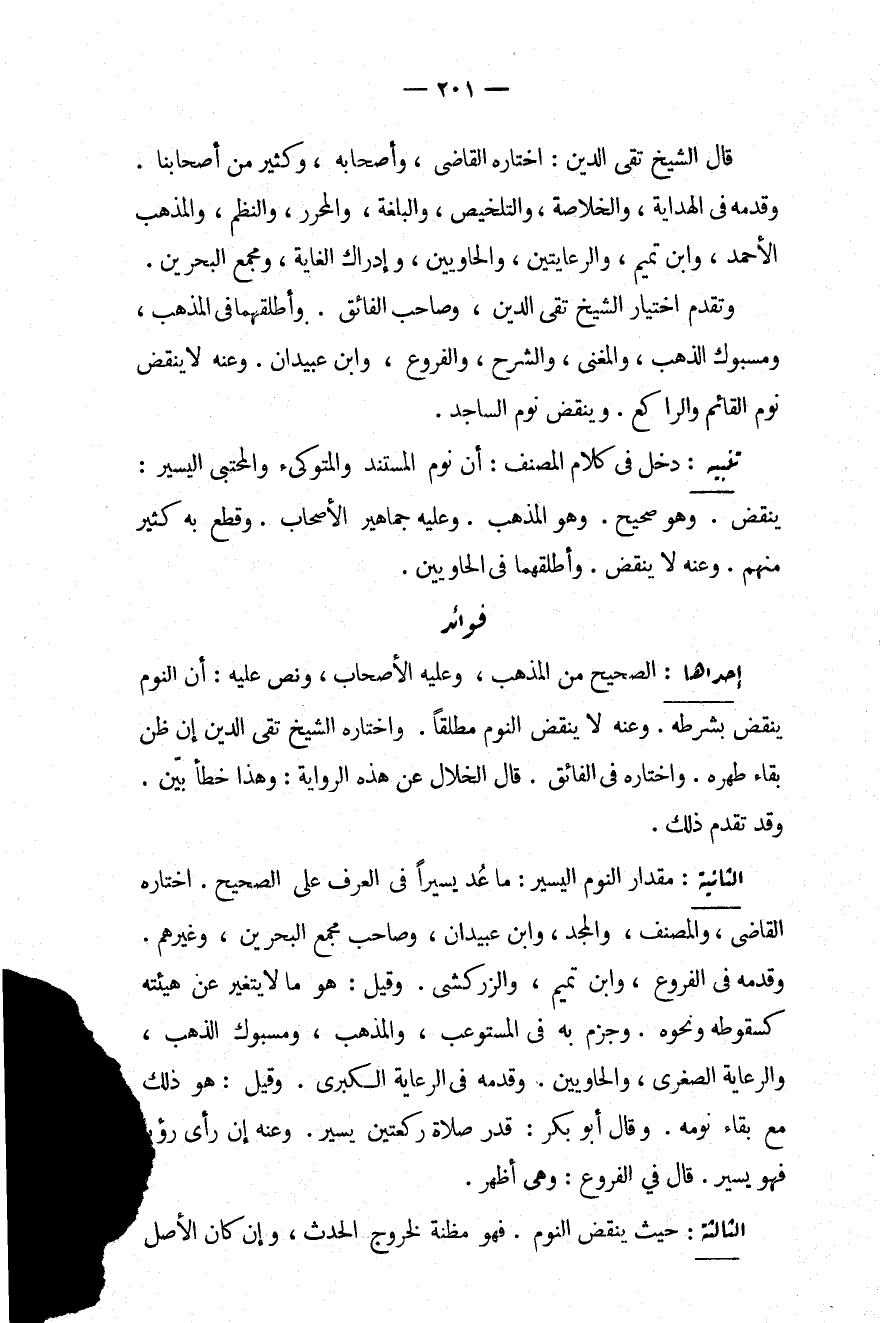 — ٢٠١ —
قال الشيخ تقى الدين : اختاره القاضى ، وأصحابه ، وكثير من أصحابنا .
وقدمه فى الهداية ، والخلاصة ، والتلخيص ، والبلغة ، والمحرر ، والنظم ، والمذهب
الأحمد ، وابن تميم ، والرعايتين ، والحاويين ، وإدراك الغاية ، ومجمع البحرين .
وتقدم اختيار الشيخ تقى الدين ، وصاحب الفائق . وأطلقهما فى المذهب ،
ومسبوك الذهب ، والمغنى ، والشرح ، والفروع ، وابن عبيدان . وعنه لا ينقض
نوم القائم والراكع . وينقض نوم الساجد .
تنبيه : دخل فى كلام المصنف : أن نوم المستند والمتوكىء والمحتبى اليسير :
ينقض . وهو صحيح . وهو المذهب . وعليه جماهير الأصحاب . وقطع به كثير
منهم . وعنه لا ينقض . وأطلقهما فى الحاويين .
فوائد
إحداها : الصحيح من المذهب ، وعليه الأصحاب ، ونص عليه : أن النوم
ينقض بشرطه . وعنه لا ينقض النوم مطلقاً . واختاره الشيخ تقى الدين إن ظن
بقاء طهره . واختاره فى الفائق . قال الخلال عن هذه الرواية : وهذا خطأ بيّن .
وقد تقدم ذلك .
الثانية : مقدار النوم اليسير : ما عُد يسيراً فى العرف على الصحيح . اختاره
القاضى ، والمصنف ، والمجد ، وابن عبيدان ، وصاحب مجمع البحرين ، وغيرهم .
وقدمه فى الفروع ، وابن تميم ، والزركشى . وقيل : هو ما لا يتغير عن هيئته
كسقوطه ونحوه . وجزم به فى المستوعب ، والمذهب ، ومسبوك الذهب ،
والرعاية الصغرى ، والحاويين . وقدمه فى الرعاية الكبرى . وقيل : هو ذلك
مع بقاء نومه . وقال أبو بكر : قدر صلاة ركعتين يسير . وعنه إن رأى
فهو يسير . قال في الفروع : وهى أظهر .
الثالثة : حيث ينقض النوم . فهو مظنة لخروج الحدث ، وإن كان الأصل